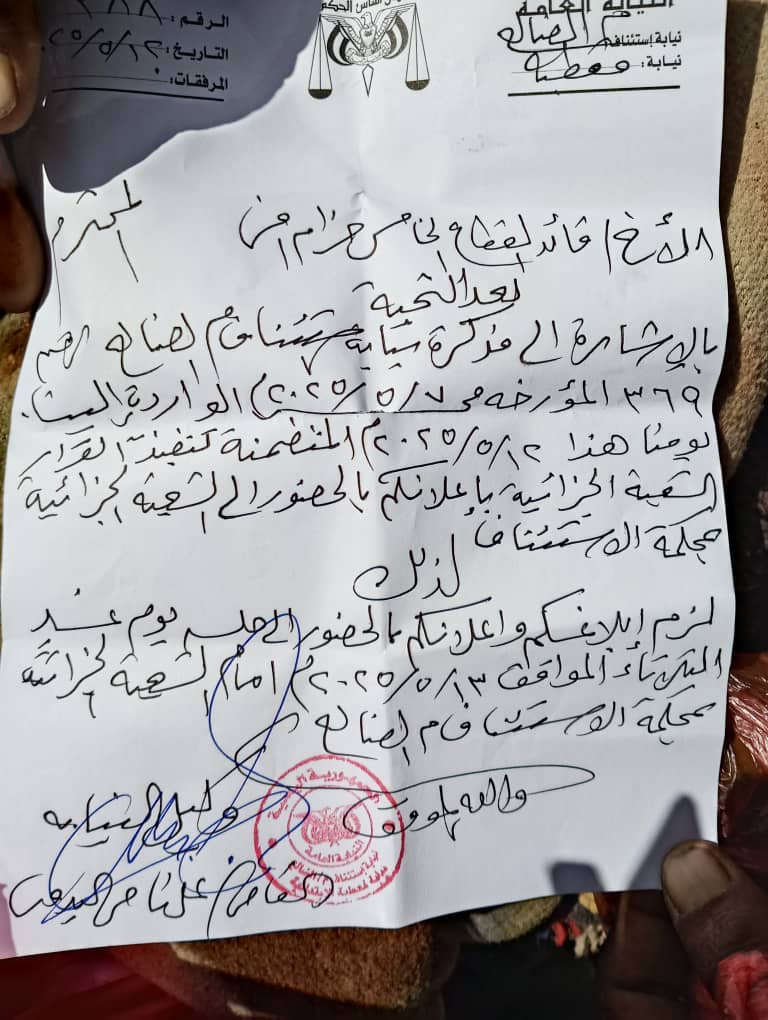 النيابة العامة
نيابة إستئناف: م الضالع
نيابة: قعطبة
العدل أساس الحكم
الرقم:
التاريخ: ١٢/٥/٢٠٢٥
المرفقات:
الأخ/ قائد القطاع الخامس حزام امن المحترم
بعد التحية
بالإشارة الى مذكرة نيابة استئناف م الضالع رقم
٣٦٩ المؤرخه في ٧/٥/٢٠٢٥م الواردة الينا
يومنا هذا ١٢/٥/٢٠٢٥م المتضمنة تنفيذ القرار
الشعبة الجزائية بإعلانكم بالحضور الى الشعبة الجزائية
محكمة الاستئناف
لذلك
لزم إبلاغكم واعلانكم بالحضور الى جلسه يوم غد
الثلاثاء الموافق ١٣/٥/٢٠٢٥م امام الشعبة الجزائية
محكمة الاستئناف م الضالع
والله الموفق
وكيل النيابه
القاضي/
النيابة العامة
نيابة إستئناف م/ الضالع